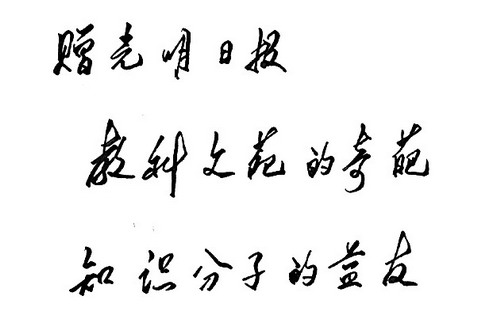 赠光明日报
教科文苑的奇葩
知识分子的益友